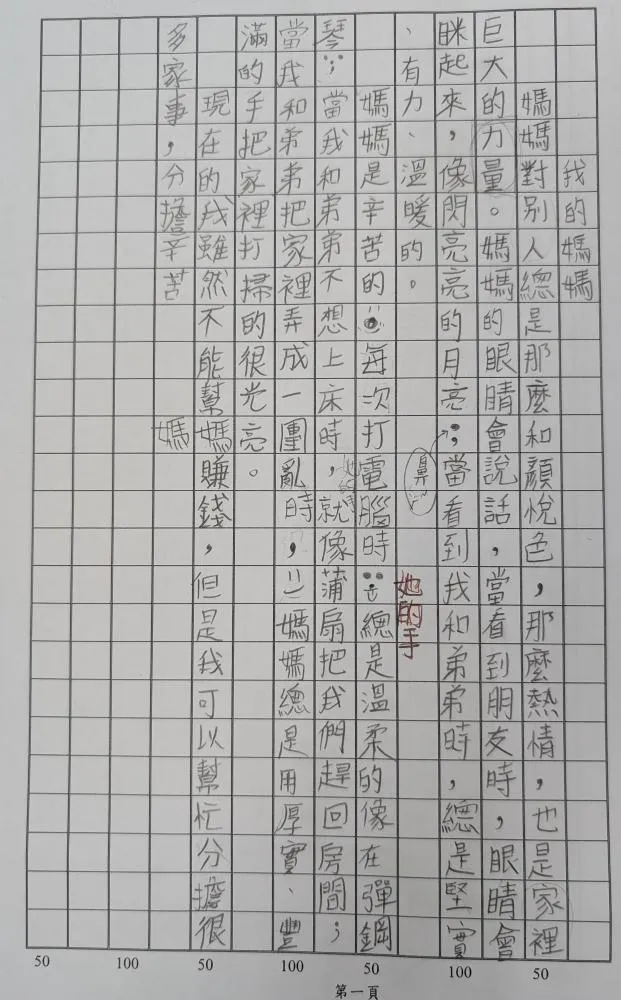 我的媽媽
媽媽對別人總是那麼和顏悅色，那麼熱情，也是家裡
巨大的力量。媽媽的眼睛會說話，當看到朋友時，眼睛會
眯起來，像閃亮亮的月亮；當看到我和弟弟時，總是堅實
、有力、溫暖的。
她的手
媽媽是辛苦的每次打電腦時總是溫柔的像在彈鋼
琴；當我和弟弟不想上床時，就像蒲扇把我們趕回房間；
當我和弟弟把家裡弄成一團亂時，媽媽總是用厚實、豐
滿的手把家裡打掃的很光亮。
現在的我雖然不能幫媽賺錢，但是我可以幫忙分擔很
多家事，分擔辛苦 媽
50 100 50 100 50 100 50
第一頁